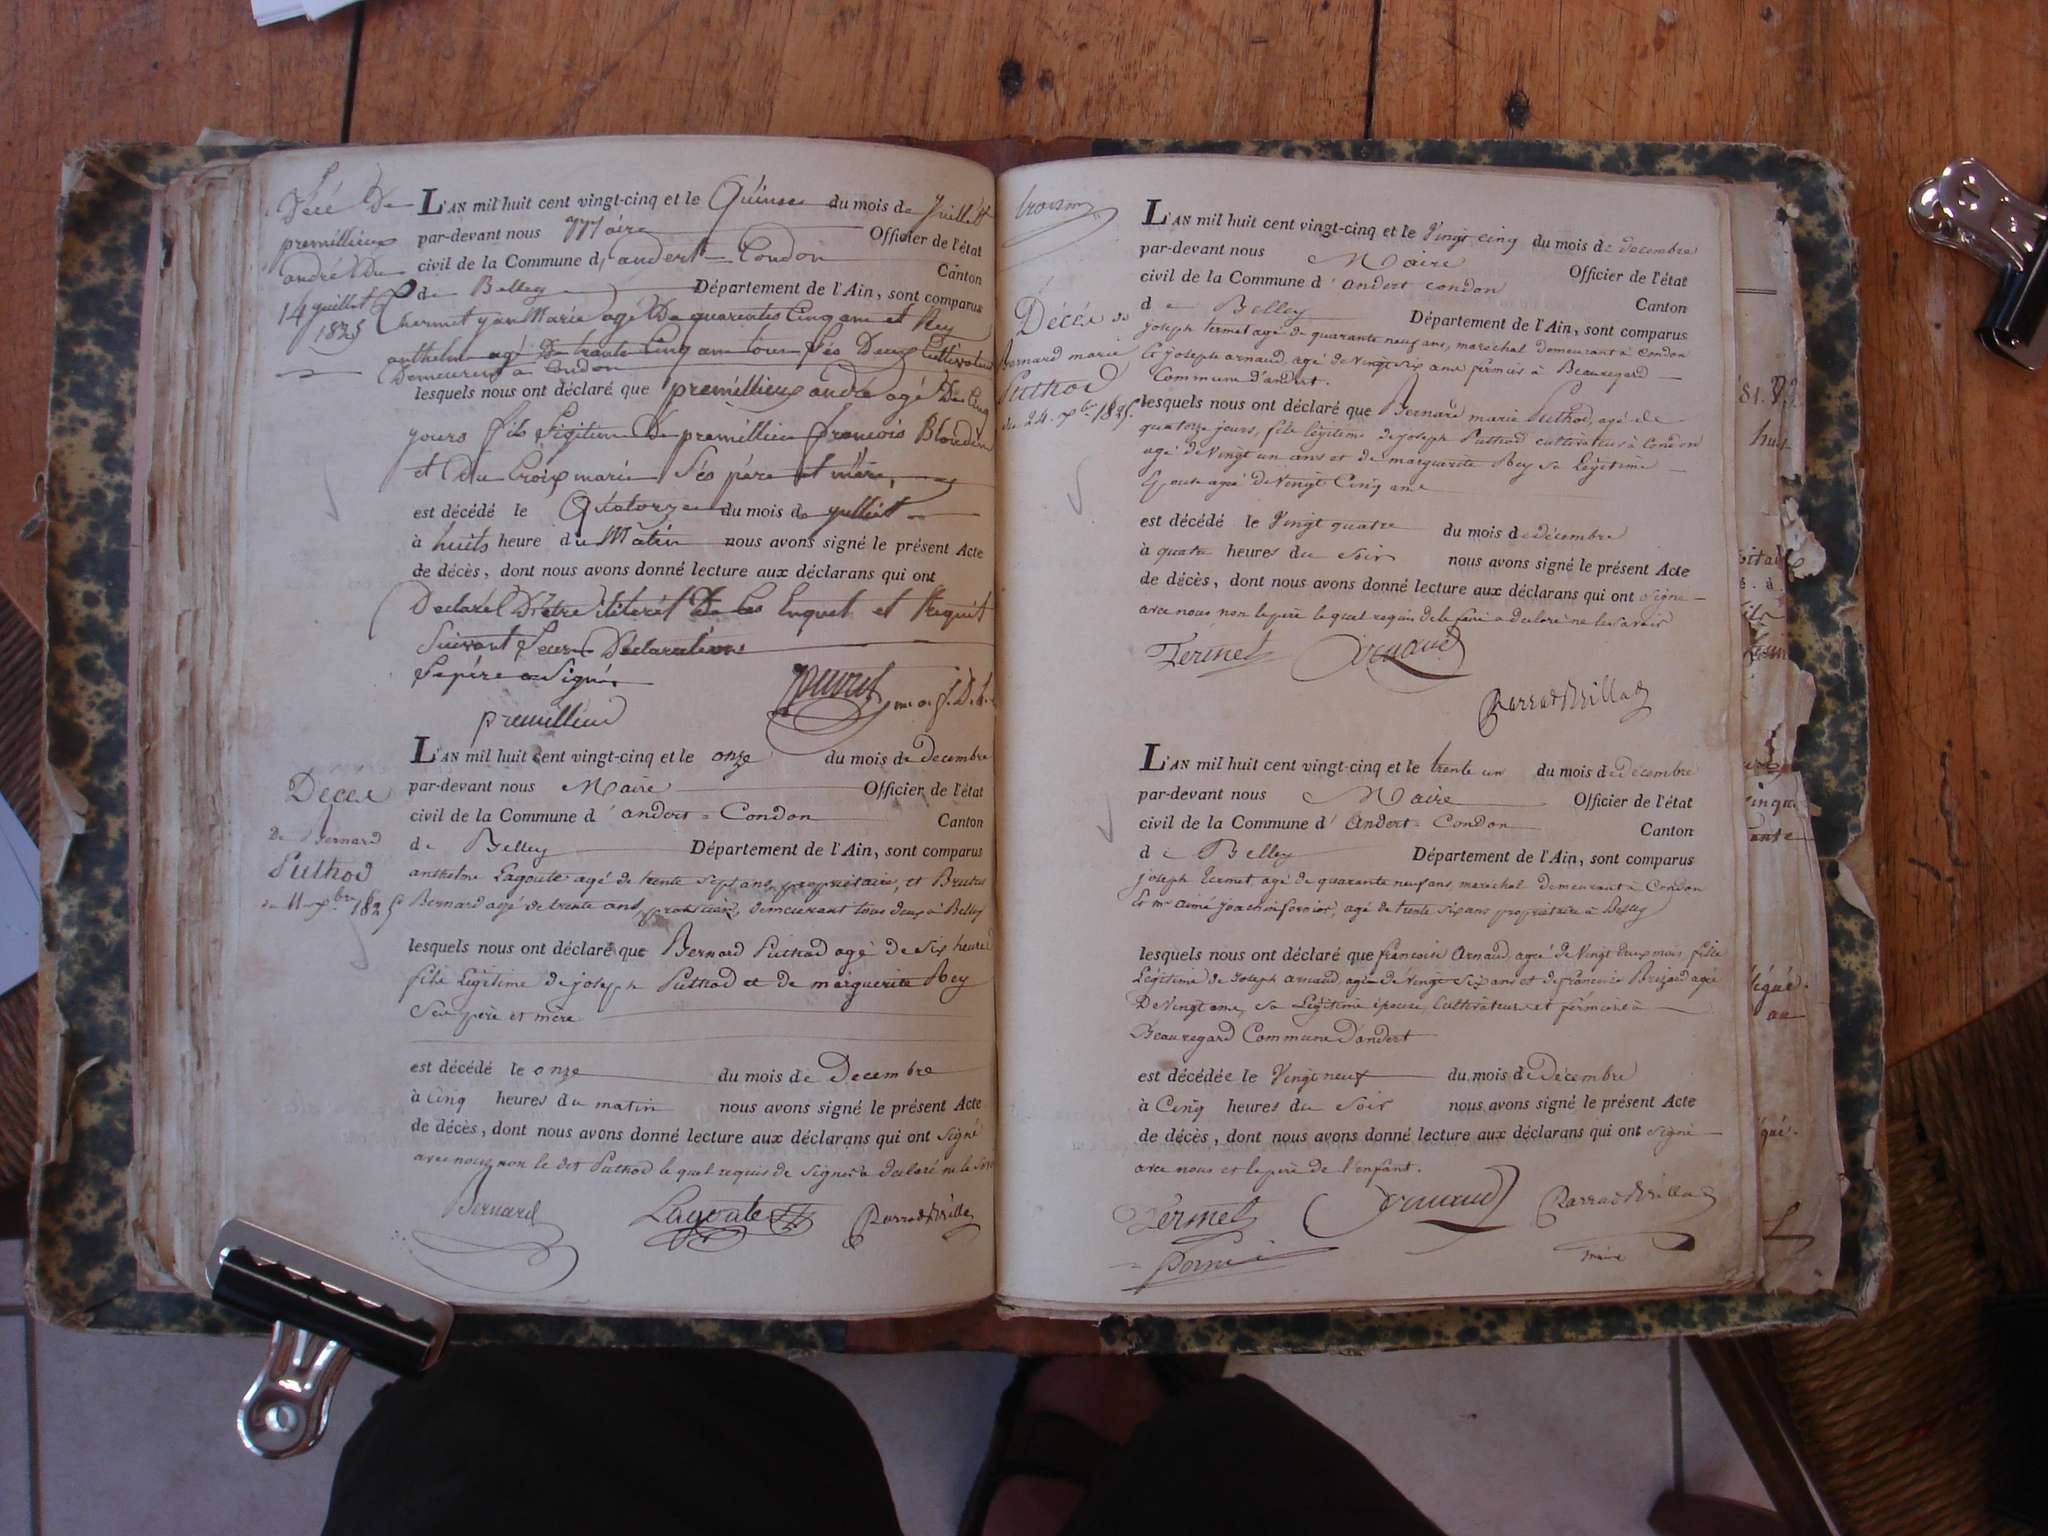 Décè De
premillieux
andré Du
14 juillet
1825
L'AN mil huit cent vingt-cinq et le Quinse du mois de Juillet
par-devant nous Maire Officier de l'état
civil de la Commune d, andert = Condon Canton
de Belley Département de l'Ain, sont comparus
agé De quarentes Cinq ans et Rey
anthelme agé De trante Cinq ans tous Deux Cultivateur
Demeurent a Condon
lesquels nous ont déclaré que premillieux andré agé De Cinq
yours fils Légitime De premillieu francois Blondin
et Du Croix marie Ses père et mère,
est décédé le Quatorze du mois de yulliet
à huits heure du Matin nous avons signé le présent Acte
de décès, dont nous avons donné lecture aux déclarans qui ont
Declarés D'être iliterés De Ce Enquet et Requit
Suivant Leurs Declarations
Le père a Signé
premillieu
Décès
De Bernard
Puthod
du 11 xbre 1825
L'AN mil huit cent vingt-cinq et le onze du mois de Decembre
par-devant nous Maire Officier de l'état
civil de la Commune d' andert = Condon Canton
de Belley Département de l'Ain, sont comparus
anthelme Lagoute agé de trente sept ans, propriétaire, et Brutus
Bernard agé de trente ans, demeurant tous deux à Belley
lesquels nous ont déclaré que Bernard Puthod agé de six heures
fils Légitime de joseph Puthod et de marguerite Rey
Ses père et mère
est décédé le onze du mois de Decembre
à Cinq heures du matin nous avons signé le présent Acte
de décès, dont nous avons donné lecture aux déclarans qui ont signé
avec nous, non le dit Puthod lequel requis de signer a declaré ne le
Bernard Lagoute Parrad Brillat
Décès de
Bernard marie
Puthod
du 24 xbre 1825
L'AN mil huit cent vingt-cinq et le Vingt cinq du mois de Decembre
par-devant nous Maire Officier de l'état
civil de la Commune d' andert condon Canton
de Belley Département de l'Ain, sont comparus
joseph termet agé de quarante neuf ans, marechal demeurant à Condon
et joseph arnaud agé de Vingt six ans fermier à Beauregard
Commune d'andert.
lesquels nous ont déclaré que Bernard marie Puthod, agé de
quatorze jours, fils légitime de joseph Puthod cultivateur à Condon
agé de Vingt un ans et de marguerite Rey sa Légitime
Epouse agée de Vingt Cinq ans
est décédé le Vingt quatre du mois de décembre
à quatre heures du soir nous avons signé le présent Acte
de décès, dont nous avons donné lecture aux déclarans qui ont signé
avec nous, non le père lequel requis de le faire a declaré ne le savoir
Termet Arnaud
Parrad Brillat
L'AN mil huit cent vingt-cinq et le trente un du mois de Decembre
par-devant nous Maire Officier de l'état
civil de la Commune d' Andert = Condon Canton
de Belley Département de l'Ain, sont comparus
joseph termet, agé de quarante neuf ans, marechal demeurant à Condon
et mr aimé joachin, agé de trente six ans propriétaire à Belley
lesquels nous ont déclaré que francoise Arnaud, agée de Vingt deux mois, fille
Légitime de Joseph Arnaud, agée de Vingt Six ans et de francoise agée
De Vingt ans, sa Légitime épouse, Cultivateurs et fermiers à
Beauregard Commune D'andert
est décédée le Vingt neuf du mois de Décembre
à Cinq heures du soir nous avons signé le présent Acte
de décès, dont nous avons donné lecture aux déclarans qui ont signé
avec nous et le père de l'enfant.
Termet Arnaud Parrad Brillat
maire